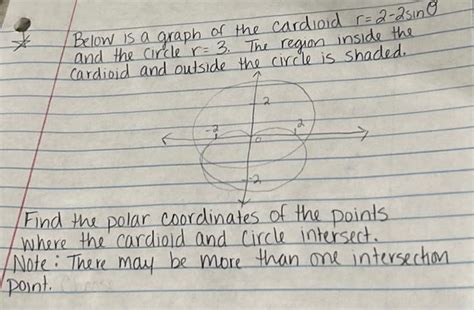 Below is a graph of the cardioid r=2-2sinθ
and the circle r=3. The region inside the
cardioid and outside the circle is shaded.
2
-2
2
0
-2
Find the polar coordinates of the points
where the cardioid and circle intersect.
Note: There may be more than one intersection
point.